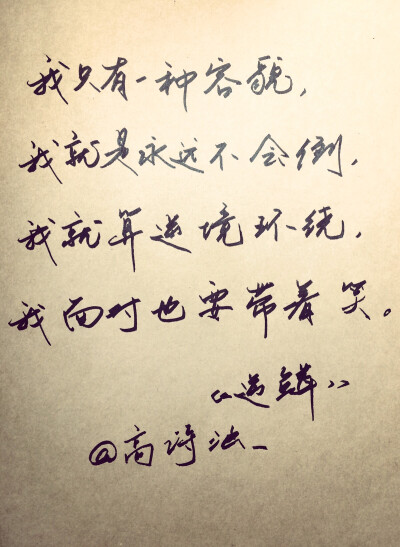 我只有一种容貌,
我就是永远不会倒,
我就算逆境环绕,
我面对也要带着笑。
@高诗